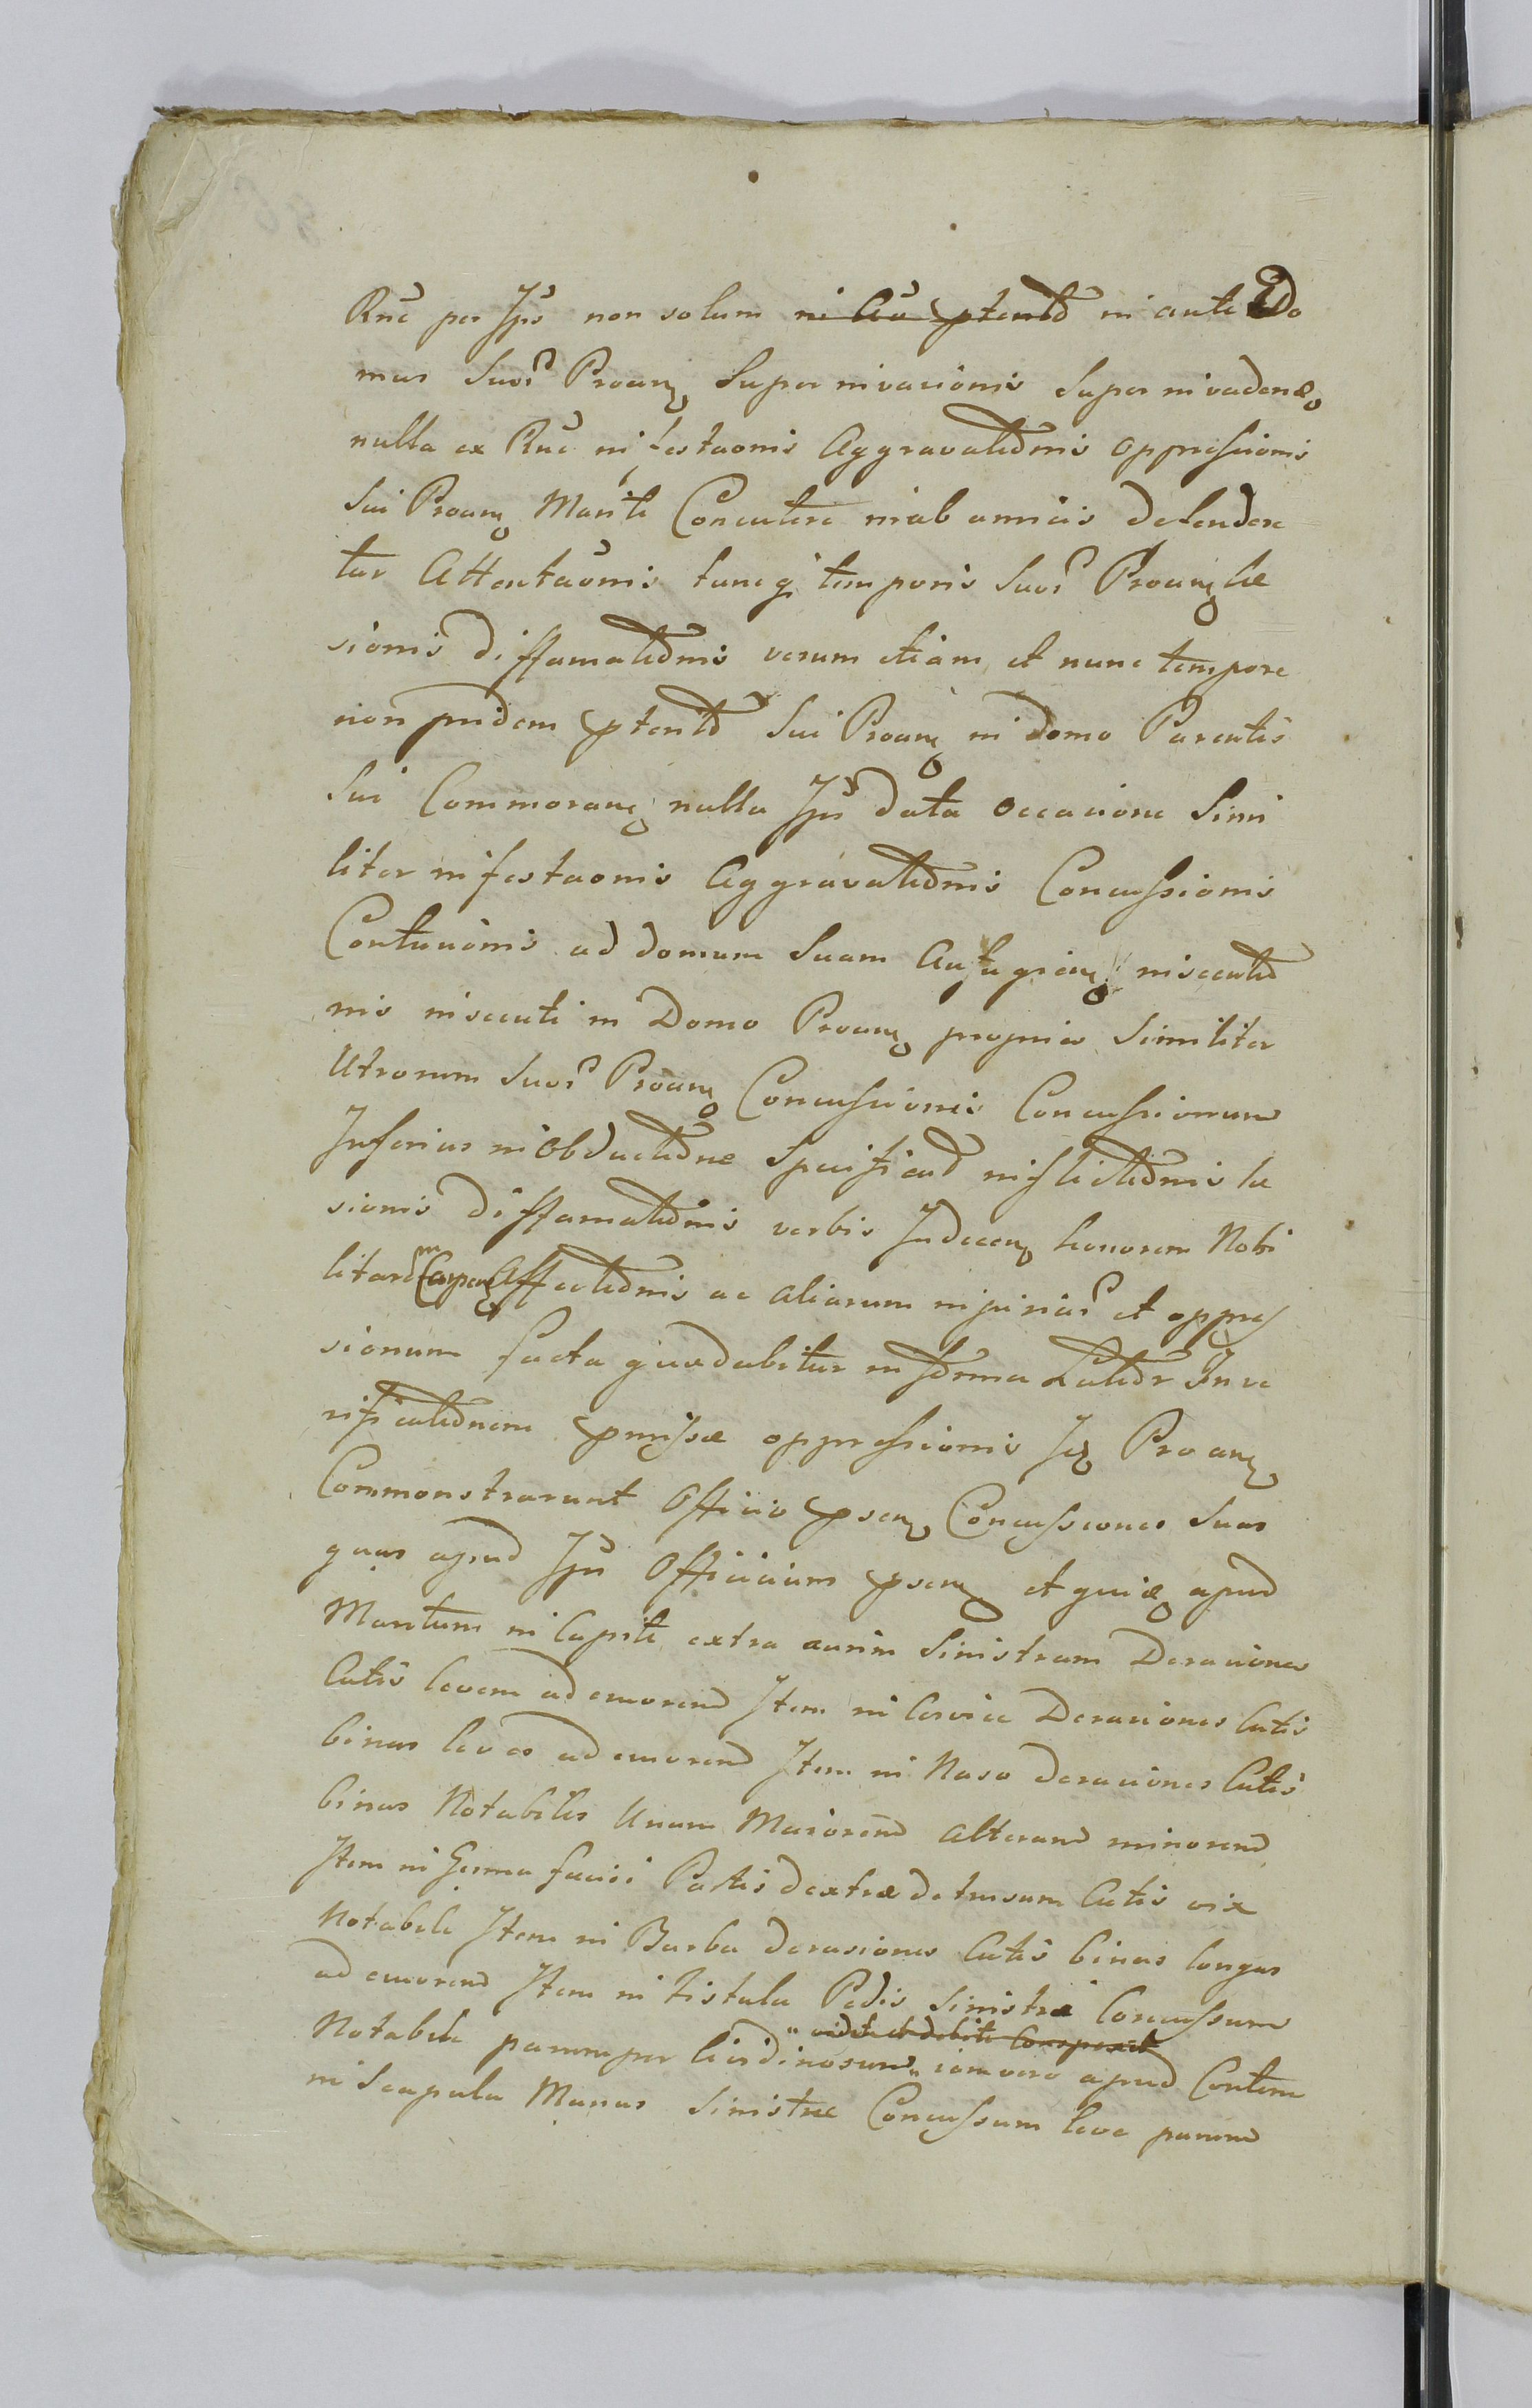 Rnē per Ipš non solum in Aō pterito in ante Do
mus Suor Proan Super invasionis Super invadenæ
nulla ex Rnē infestaōnis Aggravationis oppressionis
Sui Proan Mariti Concutere ni ab amicis defendere
tur Attentaōnis tunc q temporis Suor Proan læ
sionis diffamationis verum etiam et nunc tempore
non pridem pterito Sui Proan in domo Parentis
Sui Commoran nulla Ipš data occasione Simi
liter infestaonis Aggravationis Concussionis
Contusionis ad domum Suam Aufugien insecutio
nis insecuti in Domo Proan propria Similiter
Utrorum Suor Proan Concussionis Concussionum
Inferius in Obductione Specificat inflictionis læ
sionis diffamationis verbis Indecen honorem Nobi
litarem Carpen Affectionis ac aliarum injuriar et oppres
sionum facta quæ dabitur in forma Latior In ve
rificationem pmissæ oppressionis Idē Proan
Commonstrarunt Officio psen Concussiones Suas
quas apud Ipš Officium psen et quidē apud
Maritum in Capite extra aurim Sinistram Derasiones
Cutis levem ad cruorem Item in Cervice Derasiones Cutis
binas leves ad cruorem Item in Naso derasiones Cutis
binas Notabiles Unam Maiorem alteram minorem
Item in Gemma faciei Partis dextræ detrusum Cutis vix
Notabile Item in Barba derasiones Cutis binas longas
ad cruorem Item in Fistula Pedis Sinistræ Concussum
vidit et debite Conspexit
Notabile parumper livid inosum iam vero apud Contem
in Scapula Manus Sinistræ Concussum leve parum